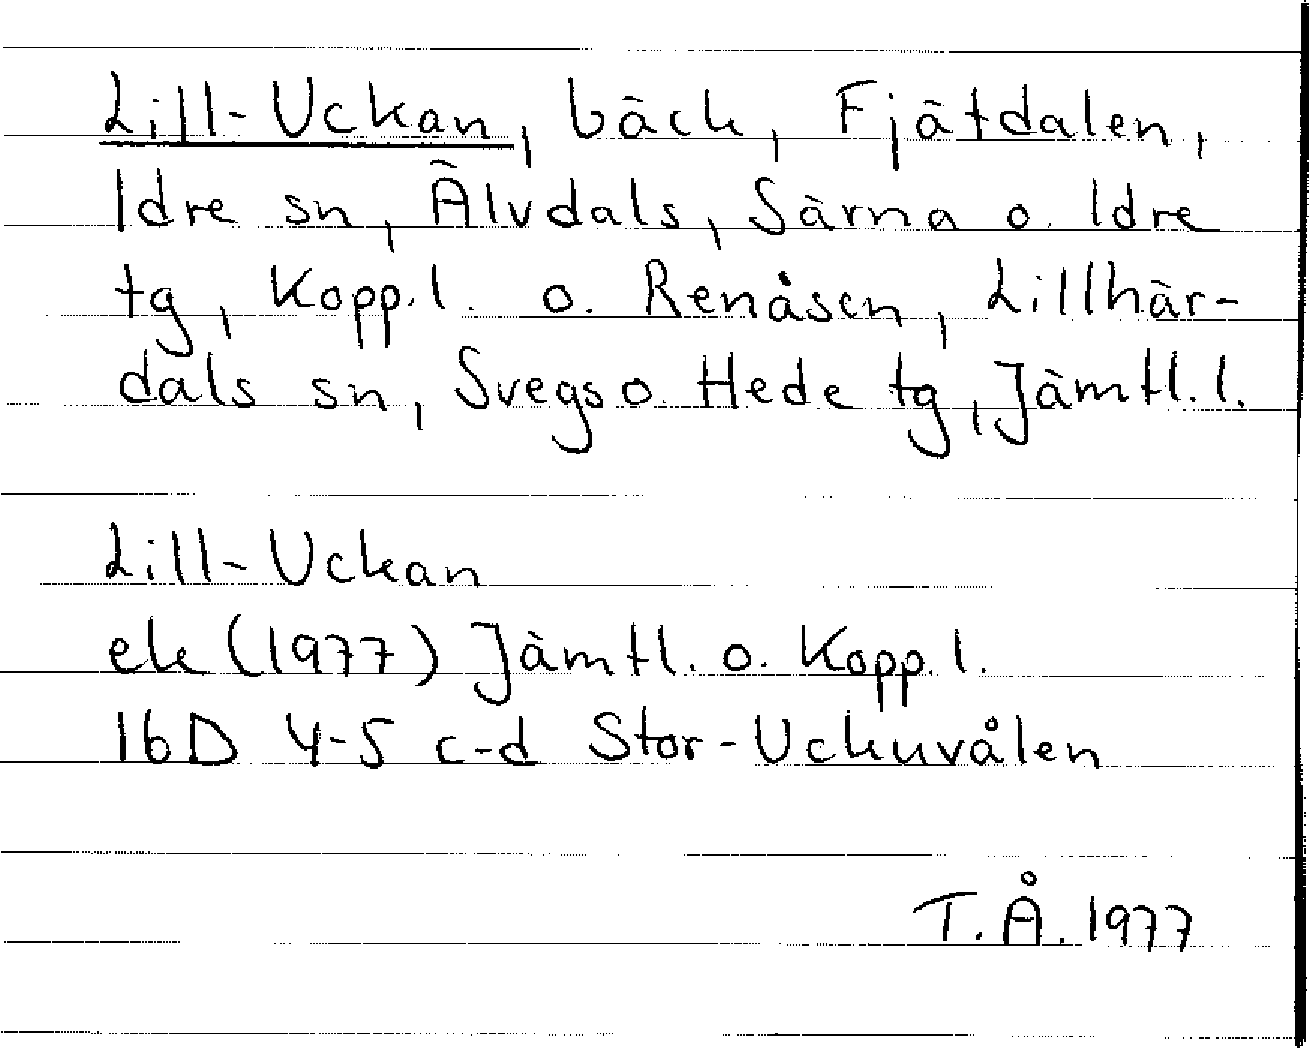 Lill-Uckan, bäck, Fjätdalen,
Idre sn, Älvdals, Särna o. Idre
tg, Kopp.l. o. Renåsen, Lillhär-
dals sn, Svegs o. Hede tg, Jämtl.l.
Lill-Uckan
ek (1977) Jämtl. o. Kopp.l.
16D 4-5 c-d Stor-Uckuvålen
T.Å. 1977